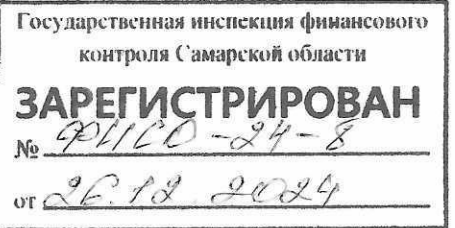 Государственная инспекция финансового
контроля Самарской области
ЗАРЕГИСТРИРОВАН
№ ФИСО-24-8
от 26.12 2024